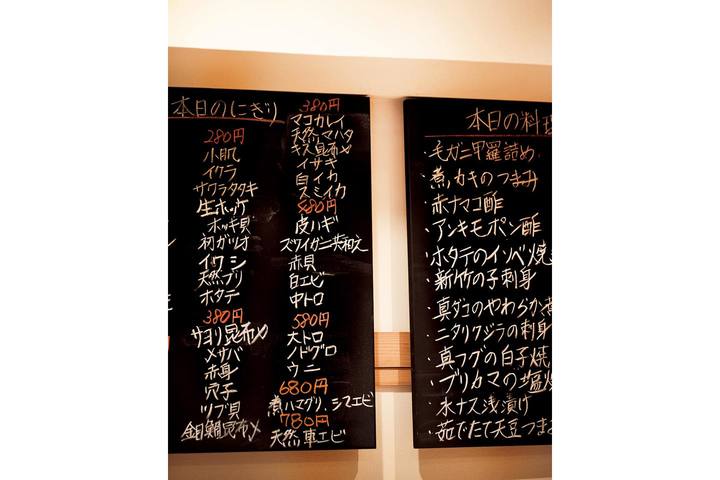 本日のにぎり
280円
小肌
イクラ
サワラタタキ
生ホッケ
ホッキ貝
初ガツオ
イワシ
天然ブリ
ホタテ
380円
サヨリ昆布〆
〆サバ
赤身
穴子
ツブ貝
金目鯛昆布〆
380円
マコガレイ
天然マハタ
キス昆布〆
イサキ
白イカ
スミイカ
480円
皮ハギ
ズワイガニ共和え
赤貝
白エビ
中トロ
580円
大トロ
ノドグロ
ウニ
680円
煮ハマグリ、シマエビ
780円
天然車エビ
本日の料理
・毛ガニ甲羅詰め
・煮カキのつまみ
・赤ナマコ酢
・アンキモポン酢
・ホタテのイソベ焼
・新竹の子刺身
・真ダコのやわらか煮
・ニタリクジラの刺身
・真フグの白子焼
・ブリカマの塩焼
・水ナス浅漬け
・茹でたて天豆つまみ